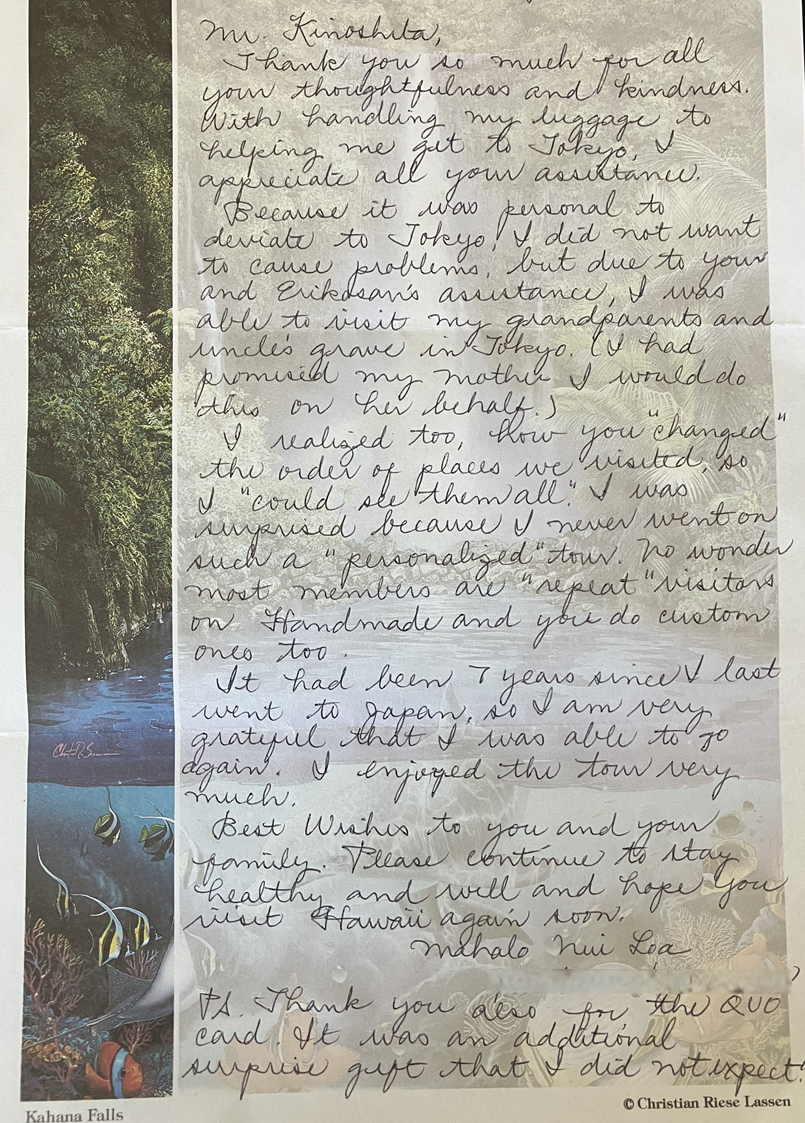 Mr. Kinoshita,
Thank you so much for all
your thoughtfulness and kindness.
With handling my luggage to
helping me get to Tokyo, I
appreciate all your assistance.
Because it was personal to
deviate to Tokyo, I did not want
to cause problems, but due to your
and Erikosan's assistance, I was
able to visit my grandparents and
uncle's grave in Tokyo. (I had
promised my mother I would do
this on her behalf.)
I realized too, how you "changed"
the order of places we visited, so
I "could see them all." I was
surprised because I never went on
such a "personalized" tour. No wonder
most members are "repeat" visitors
on Handmade and you do custom
ones too.
It had been 7 years since I last
went to Japan, so I am very
grateful that I was able to go
again. I enjoyed the tour very
much.
Best Wishes to you and your
family. Please continue to stay
healthy and well and hope you
visit Hawaii again soon.
Mahalo Nui Loa
P.S. Thank you also for the QUO
card. It was an additional
surprise gift that I did not expect!
Kahana Falls
© Christian Riese Lassen